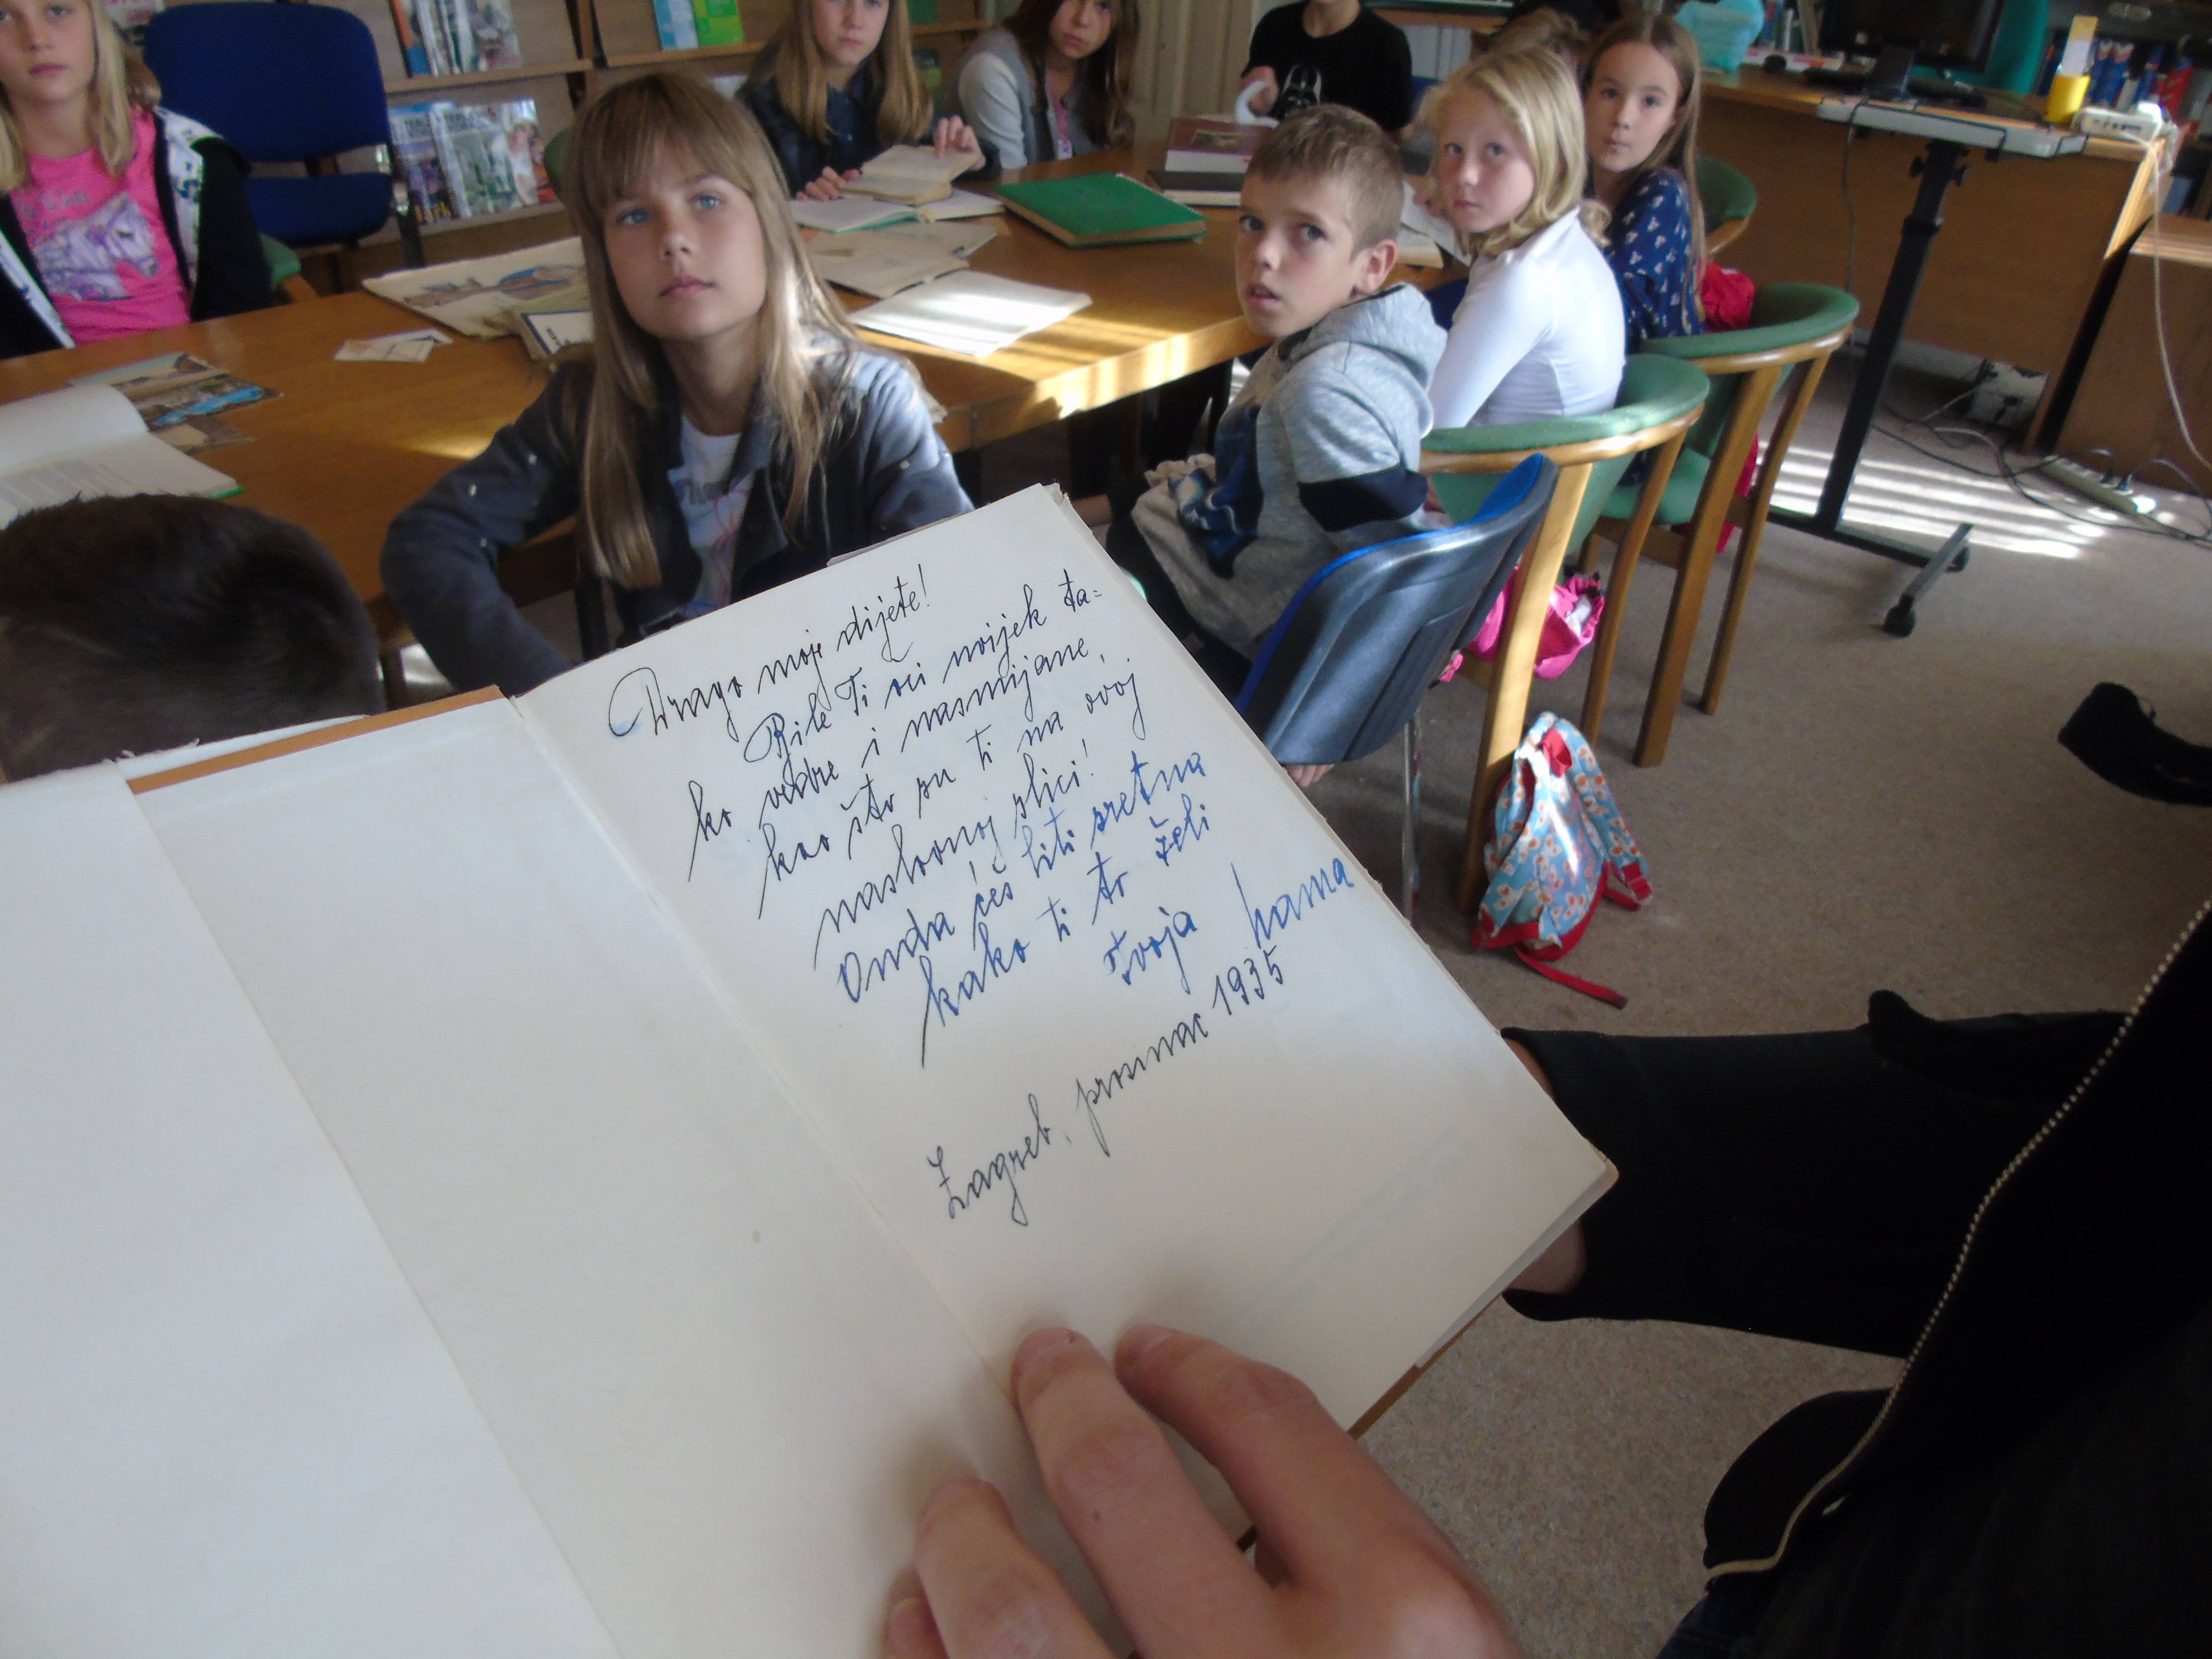 Drago moje dijete!
Bile Ti oči uvijek ta=
ko vedre i nasmijane,
kao što su ti na ovoj
naslovnoj slici!
Onda ćeš biti sretna
kako ti to želi
tvoja mama
Zagreb, prosinac 1935